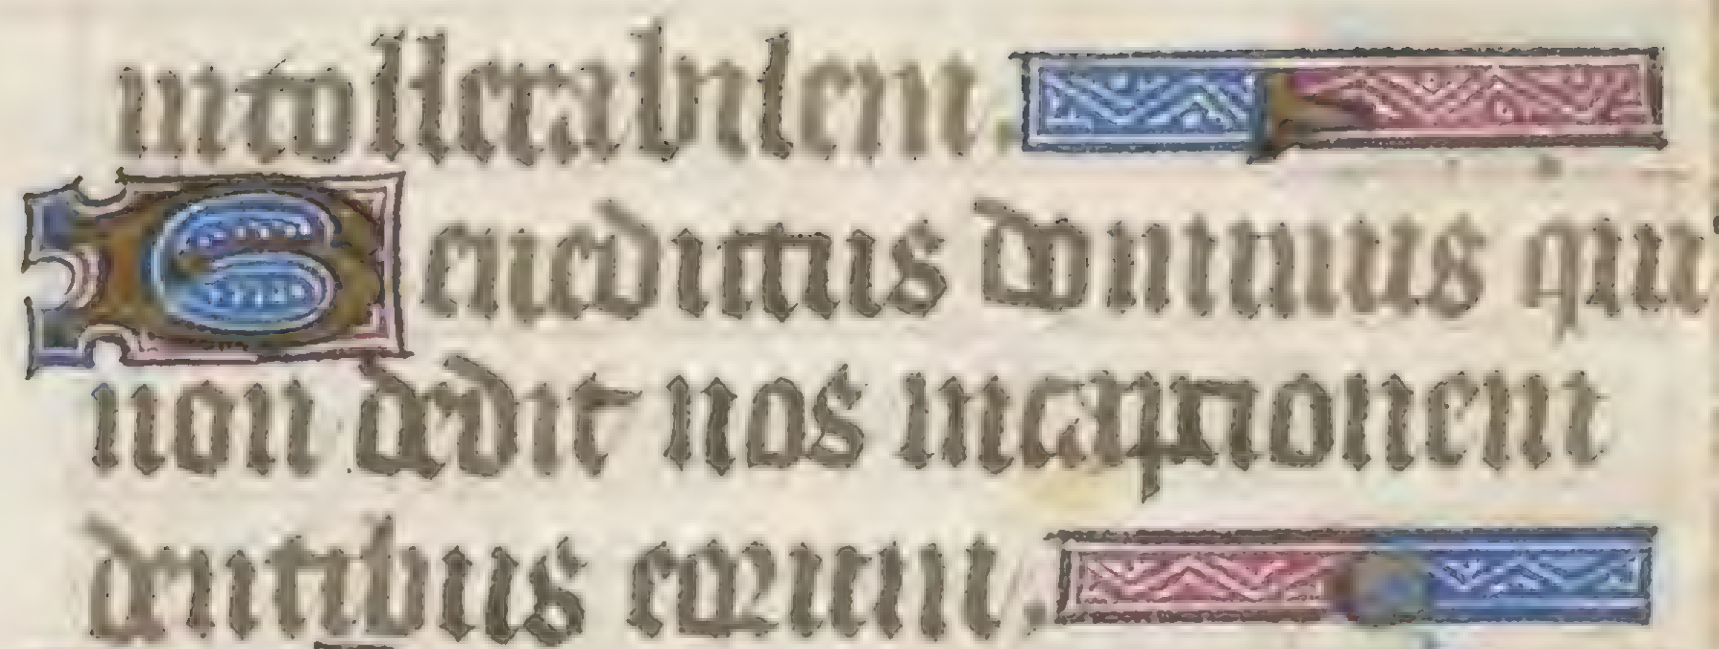 intollerabilem.
Benedictus dominus qui
non dedit nos incaptionem
dentibus eorum.